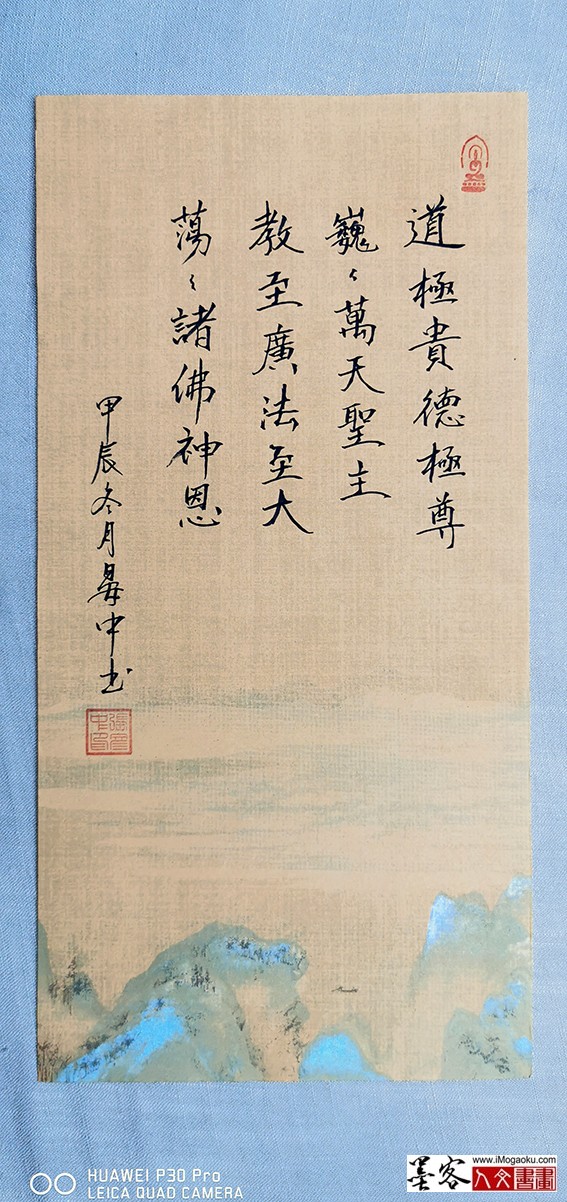 道極貴德極尊
巍〻萬天聖主
教至廣法至大
蕩〻諸佛神恩
甲辰冬月晏中书
HUAWEI P30 Pro
LEICA QUAD CAMERA
墨客
www.iMogaoku.com
人文書畫